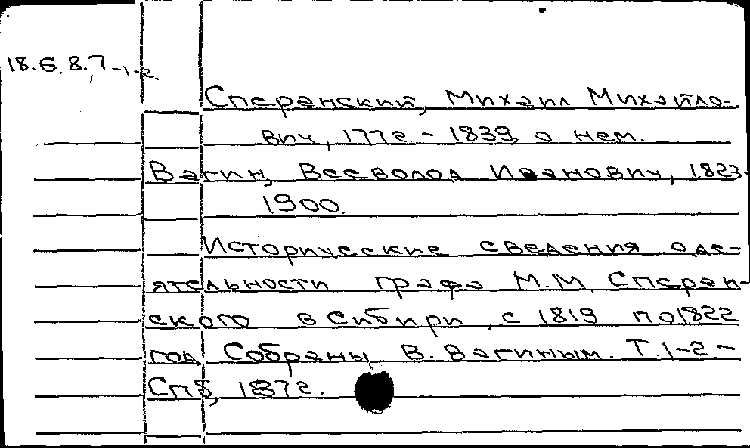 18.6.8.7-1-2
Сперанский, Михаил Михайло-
вич, 1772-1839, о нем.
Вагин, Всеволод Иванович, 1823-
1900.
Исторические сведения о де-
ятельности графа М.М. Сперан-
ского в Сибири с 1819 по 1822
год. Собраны В. Вагиным. Т.1-2.-
Спб, 1872.